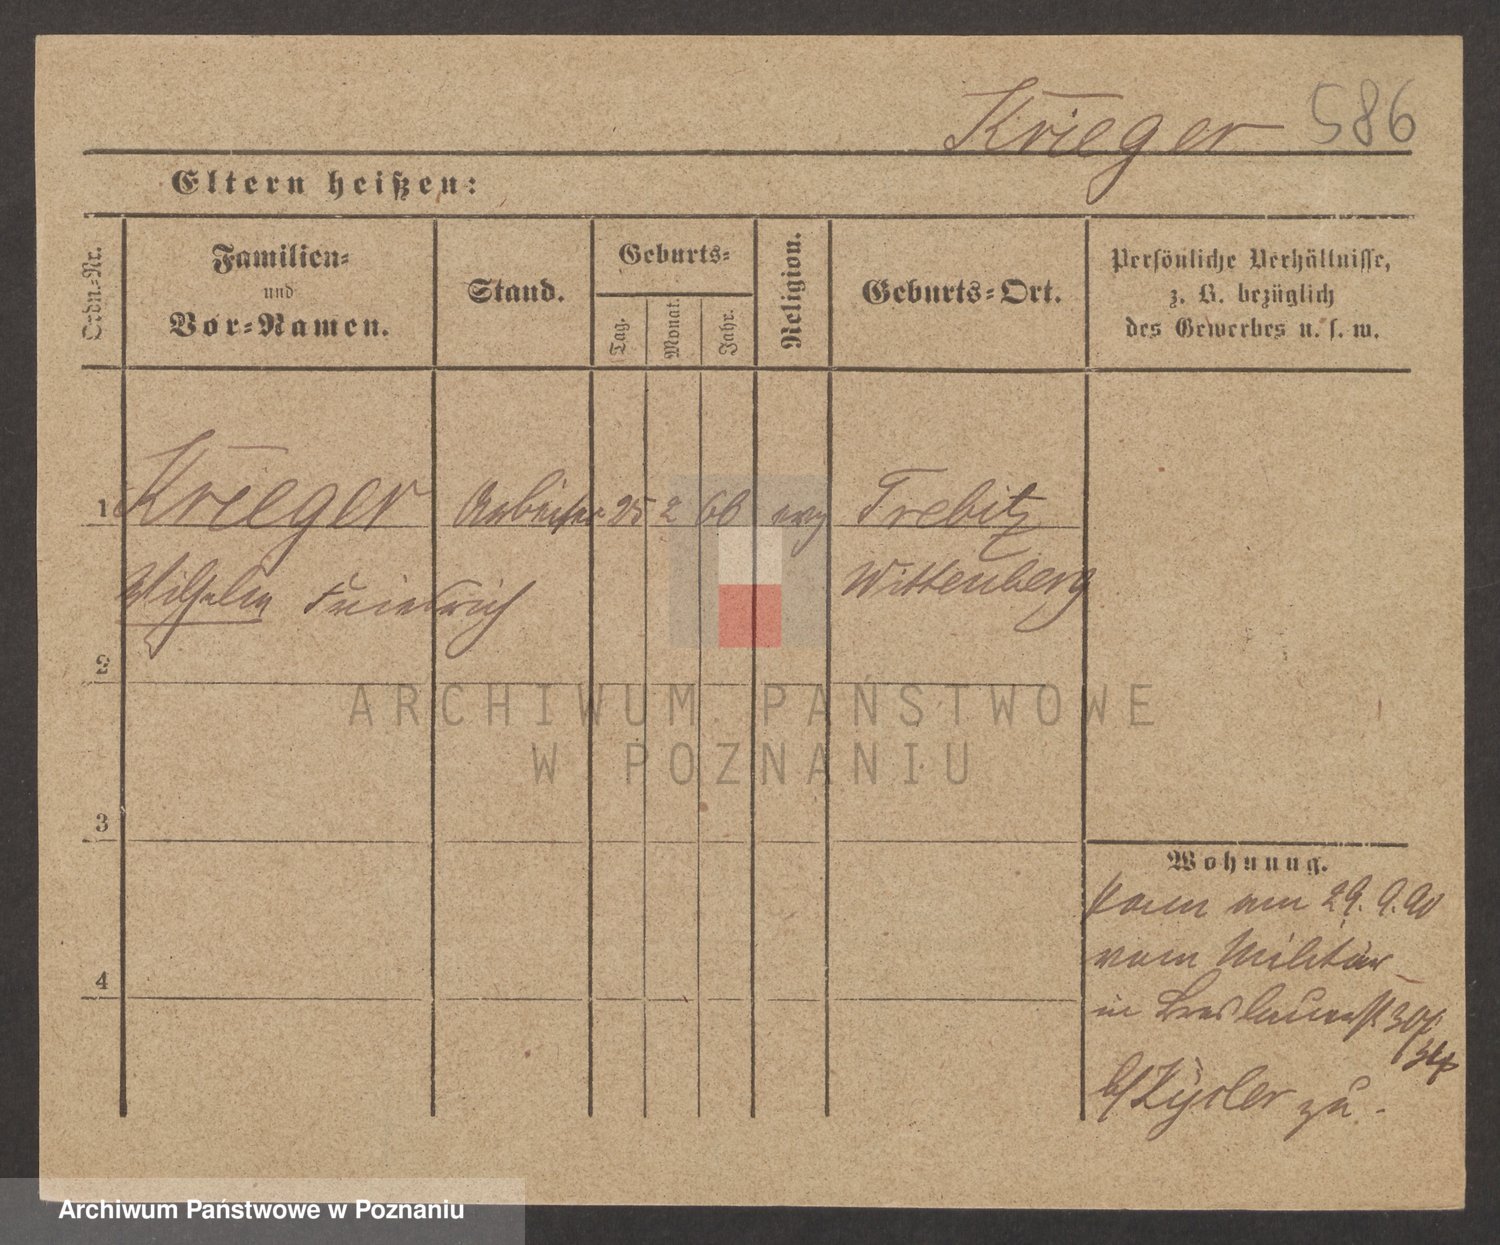 Krieger 586
Eltern heißen:
Ordn.-Nr.
Familien-
und
Vor-Namen.
Stand.
Geburts-
Tag.
Monat.
Jahr.
Religion.
Geburts-Ort.
Persönliche Verhältnisse,
z. B. bezüglich
des Gewerbes u. s. w.
1 Krieger Arbeiter 25 2 66 evg Trebitz
Wilhelm Friedrich Wittenberg
2
3
4
Wohnung.
kam am 29. 9. 90
vom Militär
in Breslauerst
b/ zu.
ARCHIWUM PAŃSTWOWE
W POZNANIU
Archiwum Państwowe w Poznaniu